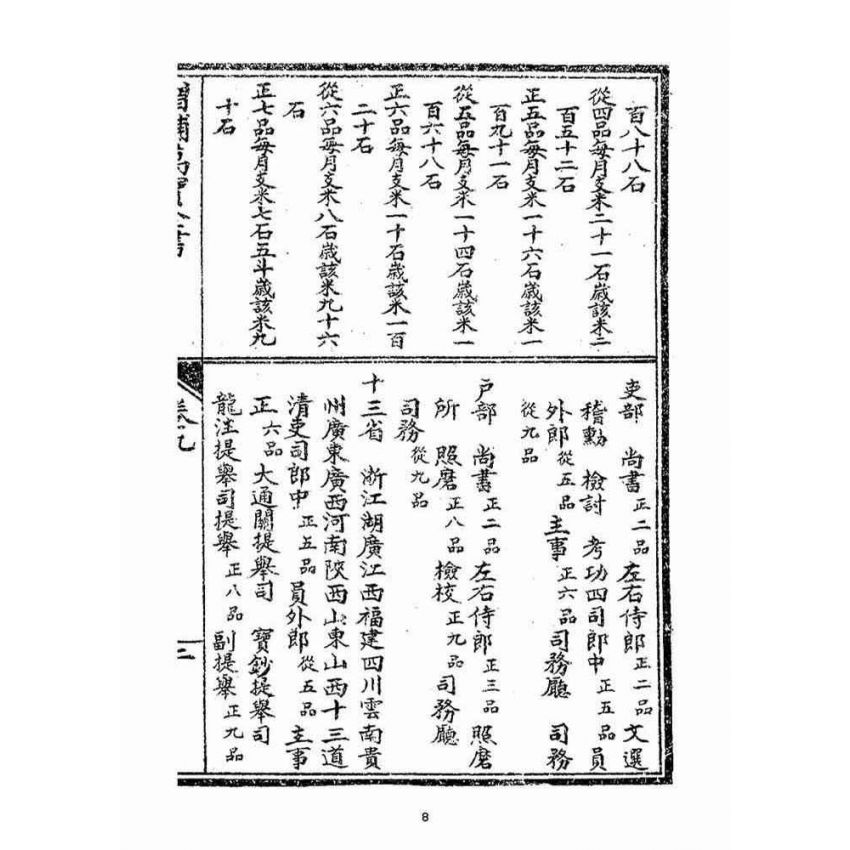 百八十八石
從四品每月支米二十一石歲該米二
百五十二石
正五品每月支米一十六石歲該米一
百九十一石
從五品每月支米一十四石歲該米一
百六十八石
正六品每月支米一十石歲該米一百
二十石
從六品每月支米八石歲該米九十六
石
正七品每月支米七石五斗歲該米九
十石
吏部 尚書正二品 左右侍郎正二品 文選
稽勳 檢討 考功四司郎中 正五品 員
外郎從五品 主事 正六品 司務廳 司務
從九品
戶部 尚書正二品 左右侍郎正三品 照磨
所 照磨正八品 檢校 正九品 司務廳
司務從九品
十三省 浙江湖廣江西福建四川雲南貴
州廣東廣西河南陝西山東山西十三道
清吏司郎中 正五品 員外郎 從五品 主事
正六品 大通關提舉司 寶鈔提舉司
龍注提舉司提舉 正八品 副提舉 正九品
卷九
8